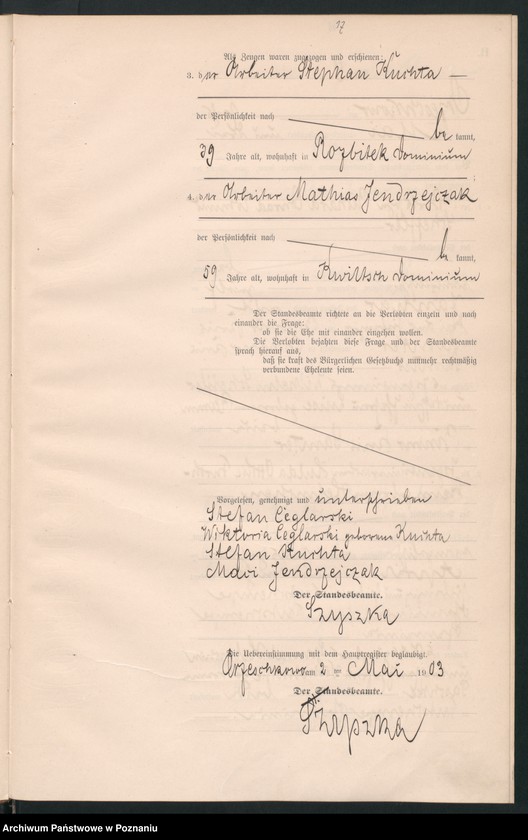 17
Als Zeugen waren zugezogen und erschienen:
3. der Arbeiter Stephan Kuchta —
der Persönlichkeit nach
be kannt,
39 Jahre alt, wohnhaft in Rozbitek Dominium
4. der Arbeiter Mathias Jendrzejczak
der Persönlichkeit nach
be kannt,
59 Jahre alt, wohnhaft in Kwiltsch Dominium
Der Standesbeamte richtete an die Verlobten einzeln und nach
einander die Frage:
ob sie die Ehe mit einander eingehen wollen.
Die Verlobten bejahten diese Frage und der Standesbeamte
sprach hierauf aus,
daß sie kraft des Bürgerlichen Gesetzbuchs nunmehr rechtmäßig
verbundene Eheleute seien.
Vorgelesen, genehmigt und unterschrieben
Stefan Ceglarski
Wiktoria Ceglarski geborene Kuchta
Stefan Kuchta
Jendrzejczak
Der Standesbeamte.
Szyszka
Die Uebereinstimmung mit dem Hauptregister beglaubigt.
Orzeschkowo am 2 ten Mai 1903
Der Standesbeamte.
Szyszka
Archiwum Państwowe w Poznaniu